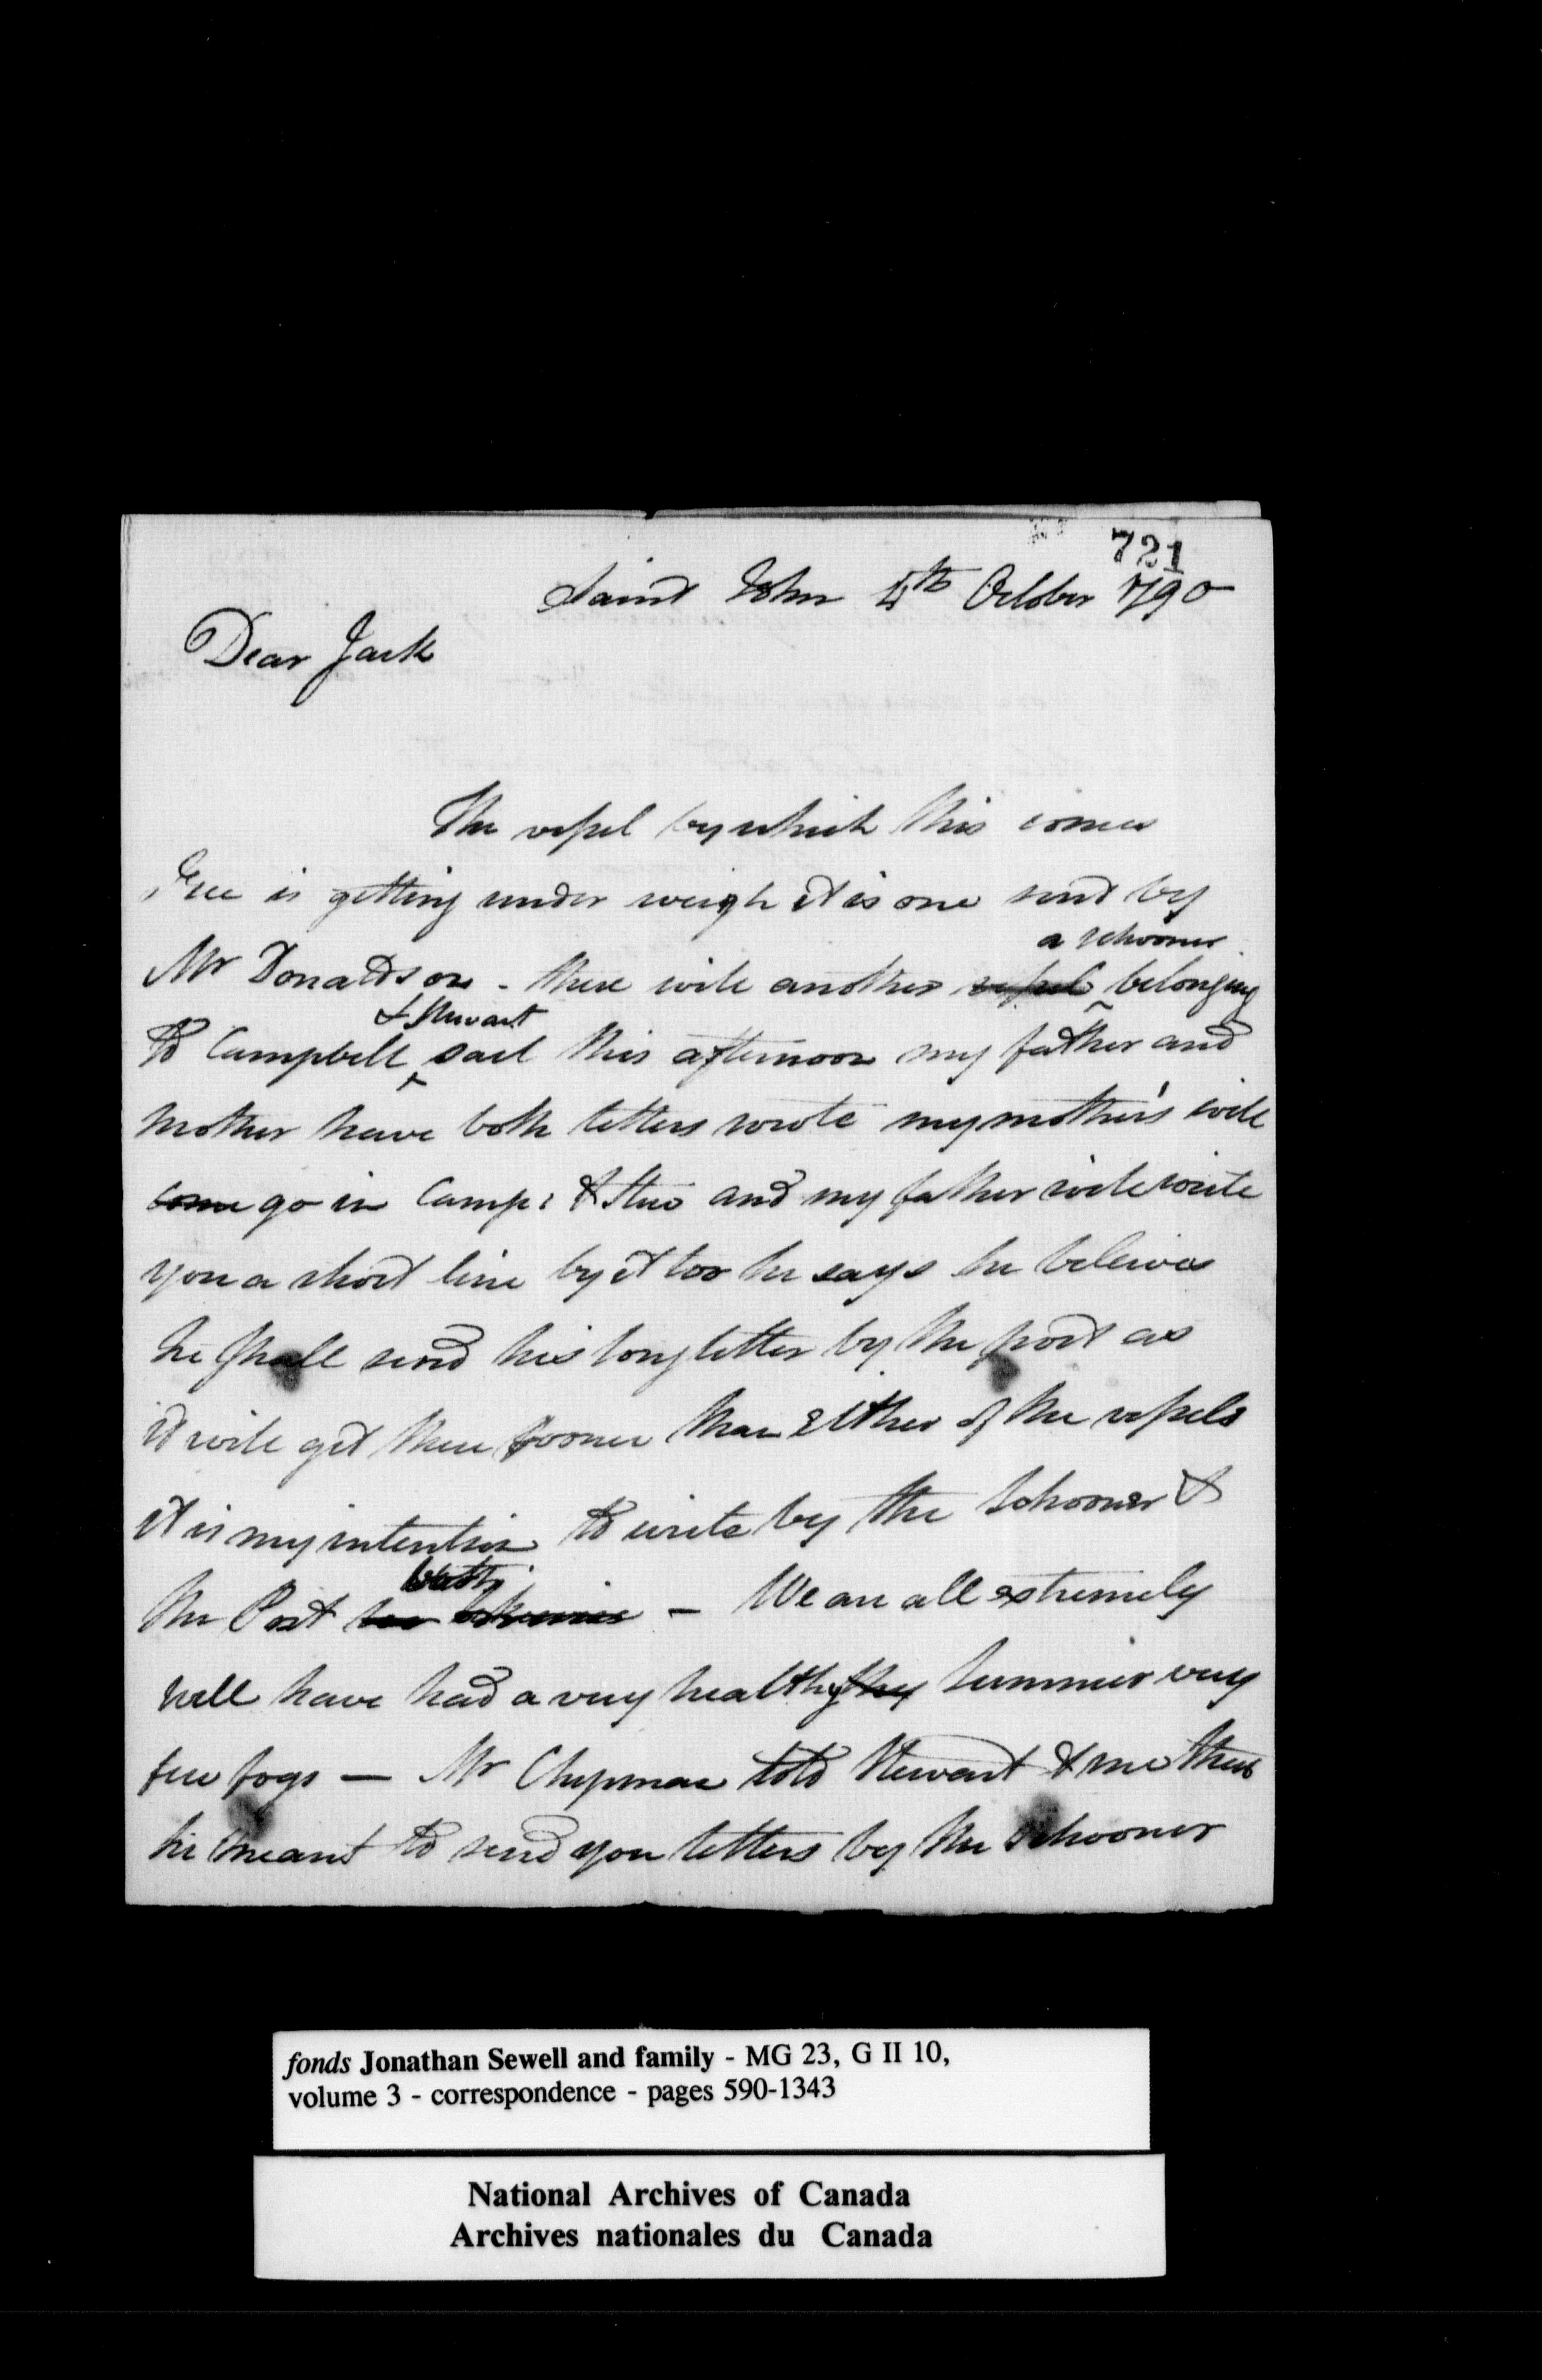 721
Saint John 4th October 1790
Dear Jack
The vessel by which this comes
is getting under weigh it is one sent by
a schooner
Mr Donaldson - there will another vessel belonging
& Stewart
to Campbell sail this afternoon my father and
mother have both letters wrote my mother's will
come go in Camp: & Stew and my father will write
you a short line by it too he says he beleives
he shall send his long letter by the post as
it will get there sooner than Either of the vessels
it is my intention to write by the Schooner &
both
the Post - We are all extremely
well have had a very healthy they summer very
few fogs — Mr Chipman told Stewart & me that
he meant to send you letters by the schooner
fonds Jonathan Sewell and family - MG 23, G II 10,
volume 3 - correspondence - pages 590-1343
National Archives of Canada
Archives nationales du Canada